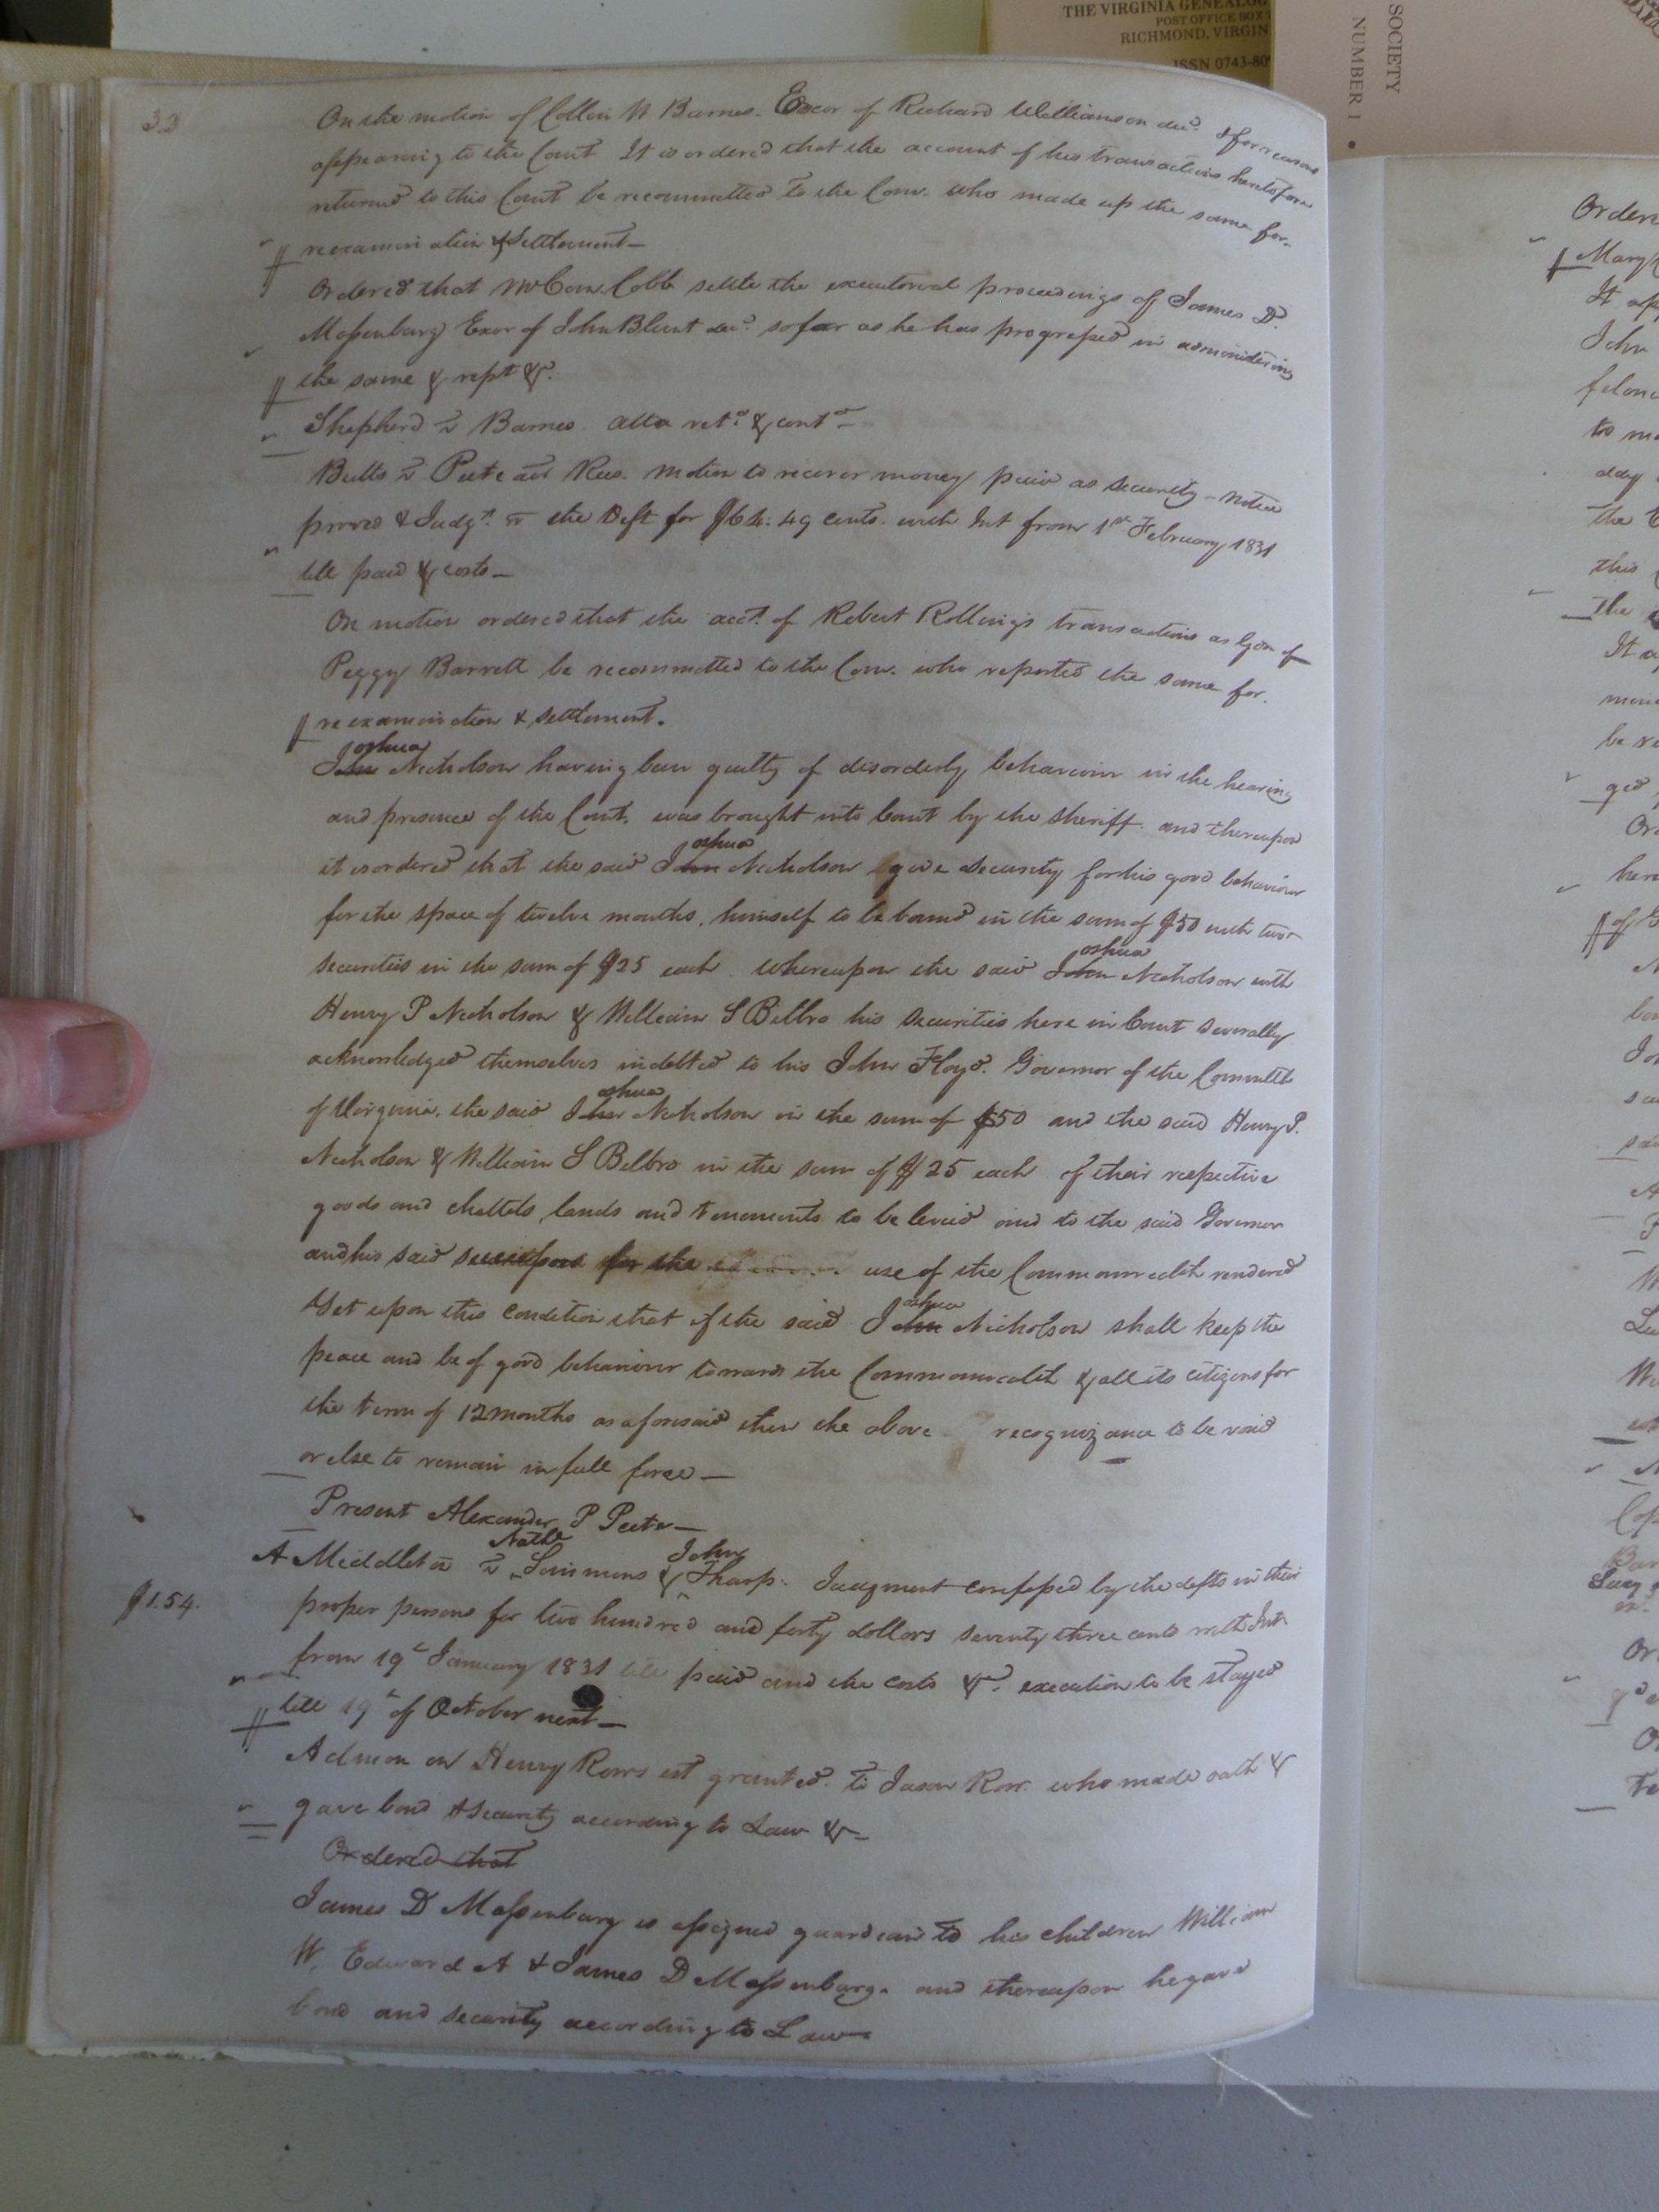 THE VIRGINIA GENEALOG
POST OFFICE BOX
RICHMOND, VIRGIN
ISSN 0743-809
SOCIETY
NUMBER 1
33
On the motion of Collin W Barnes Exor of Richard Williamson decd. & for reasons
appearing to the Court It is ordered that the account of his transactions heretofore
returned to this Court be recommitted to the Comr. who made up the same for
reexamination & Settlement—
Ordered that Mr Comr. Cobb settle the executorial proceedings of James D.
Massenburg Exor of John Blunt decd. so far as he has progressed in administering
the same & rept &c.
Shepherd vs Barnes atta retd. & contd—
Butts vs Peete Motion to recover money paid as Security — notice
proved & Judgt. vs the Deft for $64:49 cents with Int from 1st February 1831
till paid & costs—
On motion ordered that the acct. of Robert Rollings transactions as Gdn of
Peggy Barrett be recommitted to the Comr. who reported the same for
reexamination & settlement.
oshua
John Nicholson having been guilty of disorderly behaviour in the hearing
and presence of the Court, was brought into Court by the Sheriff and thereupon
oshua
it is ordered that the said John Nicholson give security for his good behaviour
for the space of twelve months, himself to be bound in the sum of $50 with two
oshua
securities in the sum of $25 each. Whereupon the said John Nicholson with
Henry P Nicholson & William S Bilbro his securities here in Court severally
acknowledged themselves indebted to his John Floyd. Governor of the Commlth
oshua
of Virginia, the said John Nicholson in the sum of $50 and the said Henry P.
Nicholson & William S Bilbro in the sum of $25 each of their respective
goods and chattels lands and tenements to be levied and to the said Governor
and his said successors for the use of the Commonwealth rendered
oshua
Yet upon this condition that if the said John Nicholson shall keep the
peace and be of good behaviour towards the Commonwealth & all its citizens for
the term of 12 months as aforesaid then the above recognizance to be void
or else to remain in full force—
Present Alexander P Peete—
Nathl John
A Middleton vs Simmons & Tharp. Judgment confessed by the defts in their
$1.54. proper persons for two hundred and forty dollars seventy three cents with Int
from 19th January 1831 till paid and the costs &c. execution to be stayed
till 19th of October next—
Admon on Henry Rows est granted to Jason Row who made oath &
gave bond & Security according to Law &—
Ordered that
James D Massenburg is assigned guardian to his children William
W, Edward A & James D Massenburg. and thereupon he gave
bond and security according to Law—
Order
Mary
John
day
this
the
be
ged
Or
here
of